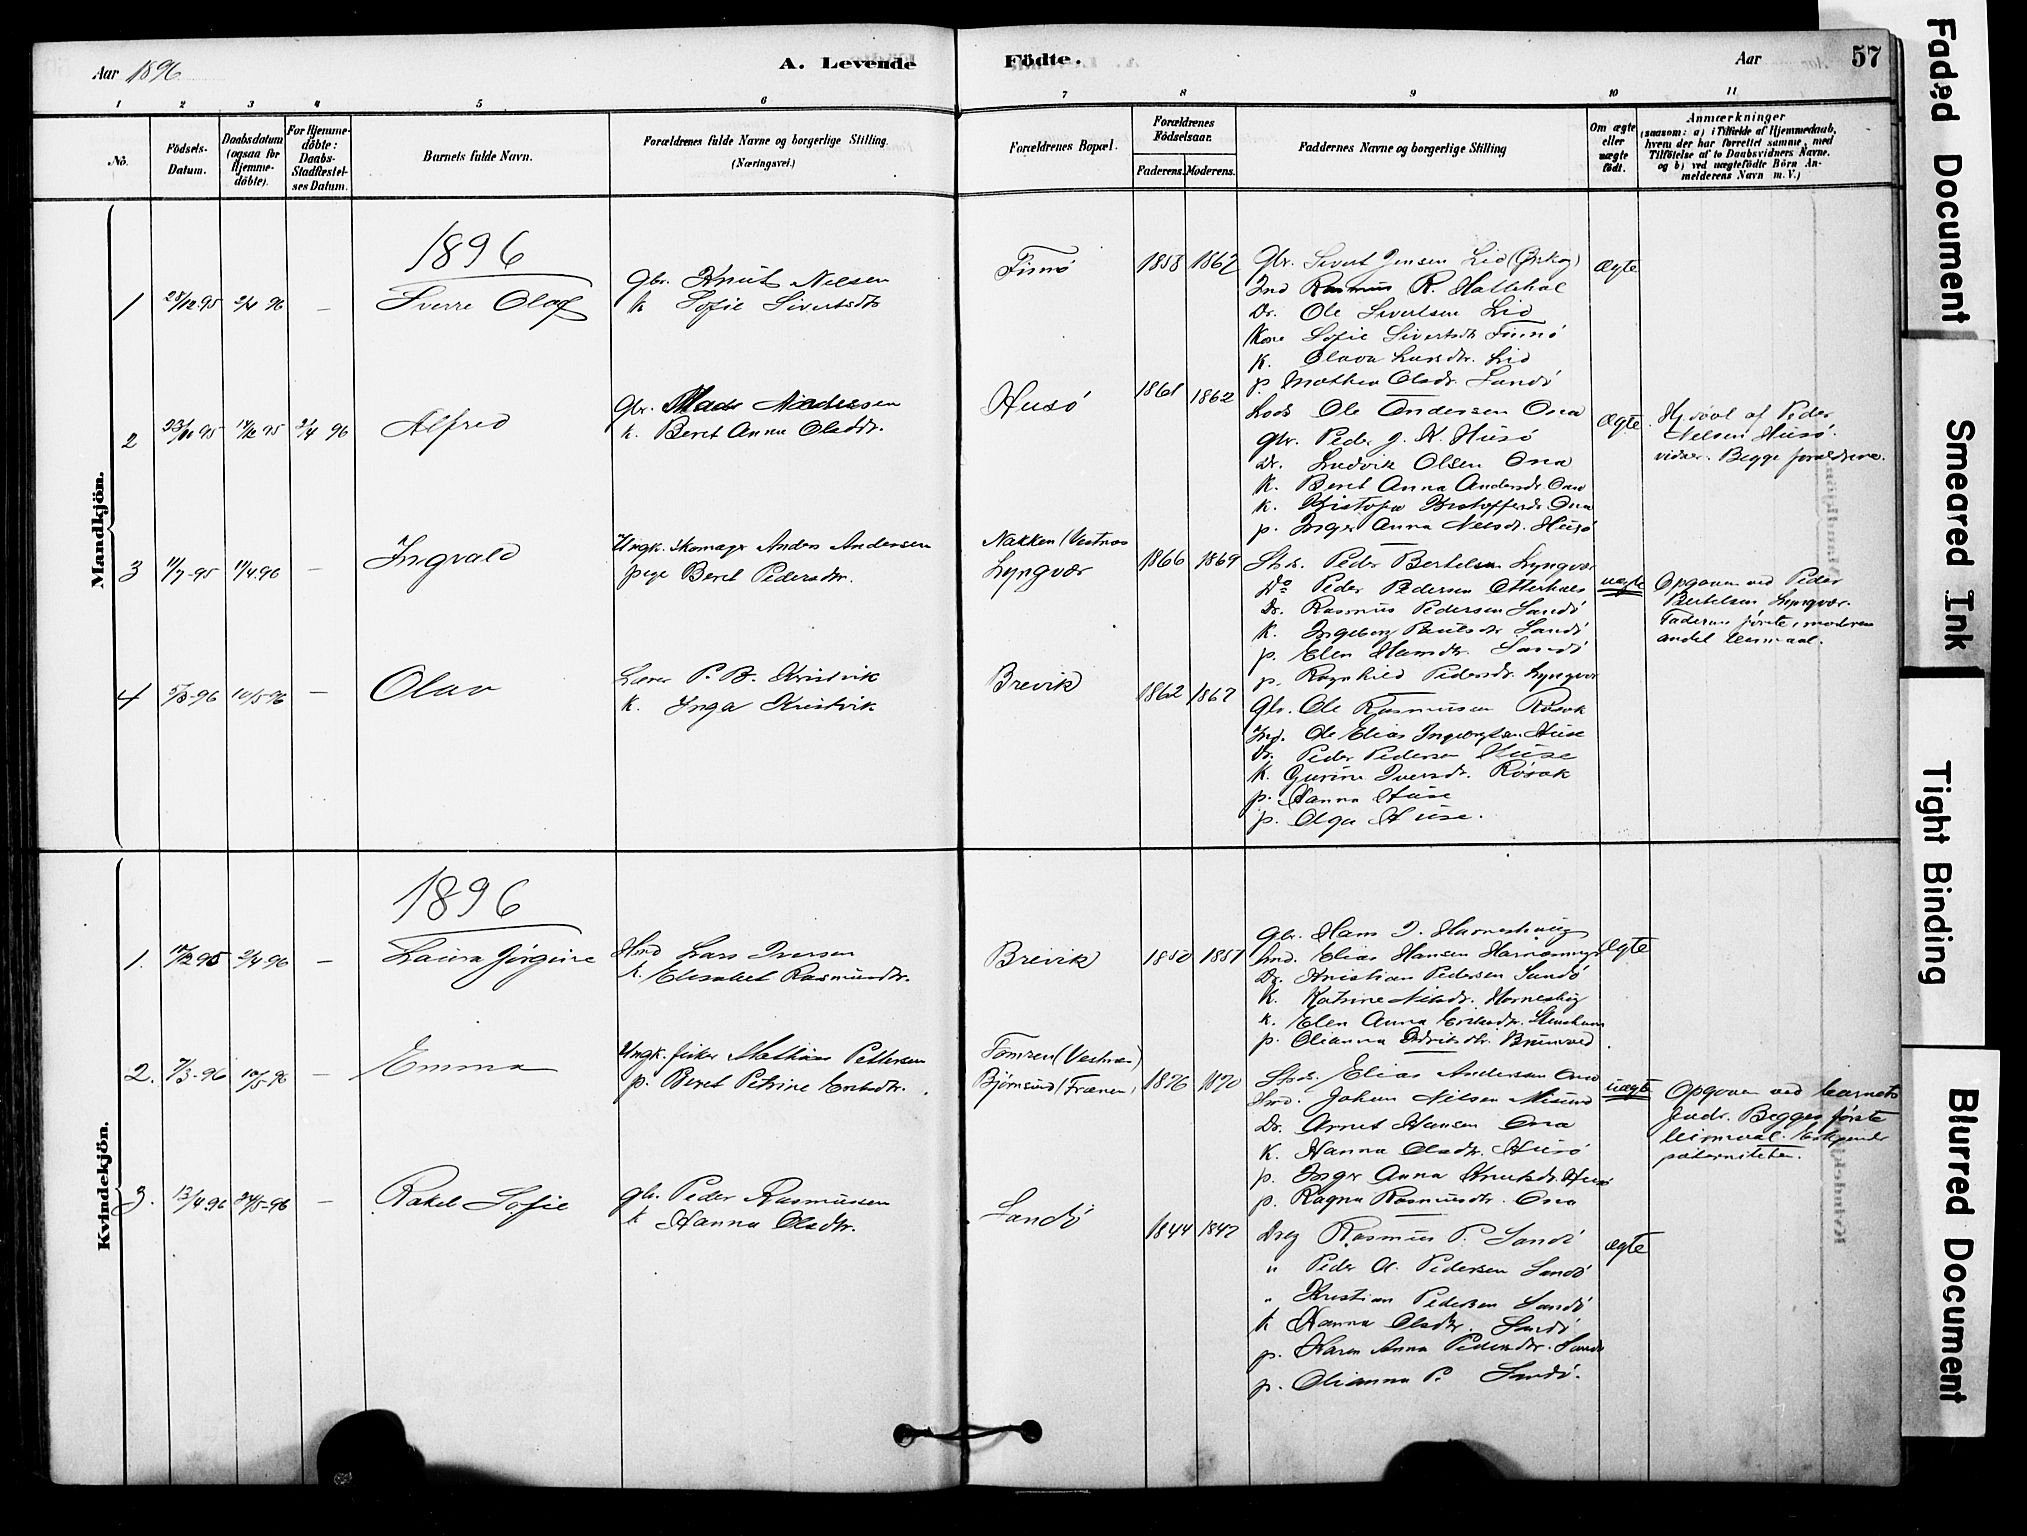 Aar 1896
A. Levende
Födte.
Aar
57
1 2 3 4 5 6 7 8 9 10 11
No.
Födsels-
Datum.
Daabsdatum
(ogsaa for
Hjemme-
döbte).
For Hjemme-
döbte:
Daabs-
Stadfæstel-
ses Datum.
Barnets fulde Navn.
Forældrenes fulde Navne og borgerlige Stilling
(Næringsvei.)
Forældrenes Bopæl.
Forældrenes
Födselsaar.
Faderens. Moderens.
Faddernes Navne og borgerlige Stilling
Om ægte
eller
uægte
födt.
Anmærkninger
(saasom: a) i Tilfælde af Hjemmedaab,
hvem der har forrettet samme, med
Tilföielse af to Daabsvidners Navne,
og b) ved uægtefödte Börn An-
melderens Navn m. V.)
Mandkjön.
1896
1 28/12 95 2/4 96 — Sverre Olaf
Gbr. Knut Nelsen
K Sofie Sivertsdtr
Finnö
1858 1862
Gbr. Sivert Jensen Lid (Ørskog)
Ind Rasmus R. Hattehal
Dr. Ole Sivertsen Lid
Kone Sofie Sivertsdtr Finnö
K. Olava Larsdtr. Lid
p. Mathea Olsdr. Sandö
ægte
2 23/10 95 14/12 95 2/4 96 Alfred
Gbr. Mads Madsen
k. Beret Anna Olsdtr.
Husö
1861 1862
Lods Ole Andersen Ona
Gbr. Peder J. N. Husö
Dr. Ludvik Olsen Ona
K. Beret Anna Andersdr. Ona
K. Kristofa Kristoffersdr Ona
p. Inger Anna Nelsdr. Husö
ægte.
Hj.döbt af Peder
Nelsen Husö.
vidner. Begge forældrene.
3 11/7-95 11/4 96 — Ingvald
Ungk. skomager Anders Andersen
pige Beret Pedersdtr.
Nakken (Vestnes
Lyngvær
1866 1869
Peder Bertelsen Lyngvær
Do Peder Pedersen Otterhals
Dr. Rasmus Pedersen Sandö
K. Ingeborg Paulsdtr Sandö
p. Elen Hansdtr. Sandö
p. Ragnhild Pedersdr. Lyngvær
uægte
Opgaven ved Peder
Bertelsen Lyngvær.
Faderens förste, moderens
andet leiermaal.
4 5/3-96 10/5 96 — Olav
Lærer P. B. Kristvik
K. Inga Kristvik
Brevik
1862 1867
Gbr. Ole Rasmussen Rösok
Ole Elias Ingebrigtsen Huse
Dr. Peder Pedersen Huse
K. Gurine Iversdr. Rösok
p. Hanna Huse
p. Olga Huse.
Kvindekjön.
1896
1. 18/12 95 2/4 96 — Laura Jörgine
Hmd Lars Iversen
k. Elisabet Rasmusdtr.
Brevik
1850 1857
Gbr. Hans J. Harneshaug
Hmd. Elias Hansen Harnesmyr
Dr. Kristian Pedersen Sandö
K. Katrine Nilsdr. Harneshaug
K. Elen Anna
p. Olianna
ægte
2. 7/3-96 10/5 96 — Emma
Ungk. fisker Mathias Pettersen
p. Beret Petrine
Tomren (Vestnes)
Björnsund (Frænen)
1876 1870
Elias Andersen Ona
Hmd. Johan Nilsen Misund
Dr. Arnt Hansen Ona
K. Hanna Olsdtr. Husö
p. Inger Anna Knutsdr. Husö
p. Ragna Rasmusdtr. Ona
uægte
Opgaven ved barnets
fadr. Begges förste
leiermaal.
paterniteten.
3. 13/4 96 24/5-96 — Rakel Sofie
gbr. Peder Rasmussen
k Hanna Olsdtr.
Sandö
1844 1847
Dreg Rasmus P. Sandö
" Peder A. Pedersen Sandö
" Kristian Pedersen Sandö
k Hanna Olsdtr. Sandö
p. Karen Anna Pedersdtr. Sandö
p. Olianna P. Sandö.
ægte
Faded Document
Smeared Ink
Tight Binding
Blurred Document